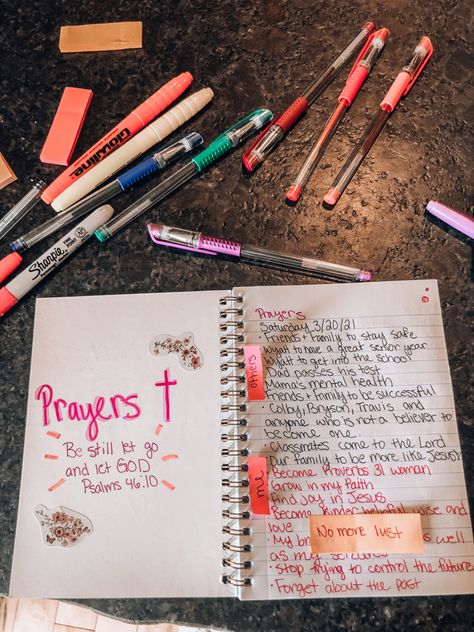 Glokline
Sharpie
FINE POINT
Prayers
Be still let go
and let GOD
Psalms 46:10
Prayers
Saturday 3/20/21
Friends + Family to stay safe
Wyatt to have a great senior year
Wyatt to get into the school
Dad passes his test
Mama's mental health
Friends + Family to be successful
• Colby, Bryson, Travis and
anyone who is not a believer to
become one
• Classmates come to the Lord
Our family to be more like Jesus
others
Become Proverbs 31 woman
Grow in my faith
Find joy in Jesus
Become kinder helpful wise and
love
me
No more lust
• My as well
as my
• Stop trying to control the future
• Forget about the past